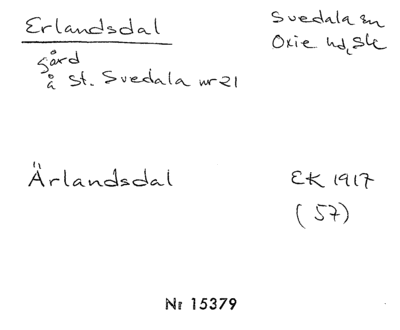 Erlandsdal
Svedala sn
Oxie hd, Sk
gård
å St. Svedala nr 21
Ärlandsdal
EK 1917
(57)
Nr 15379